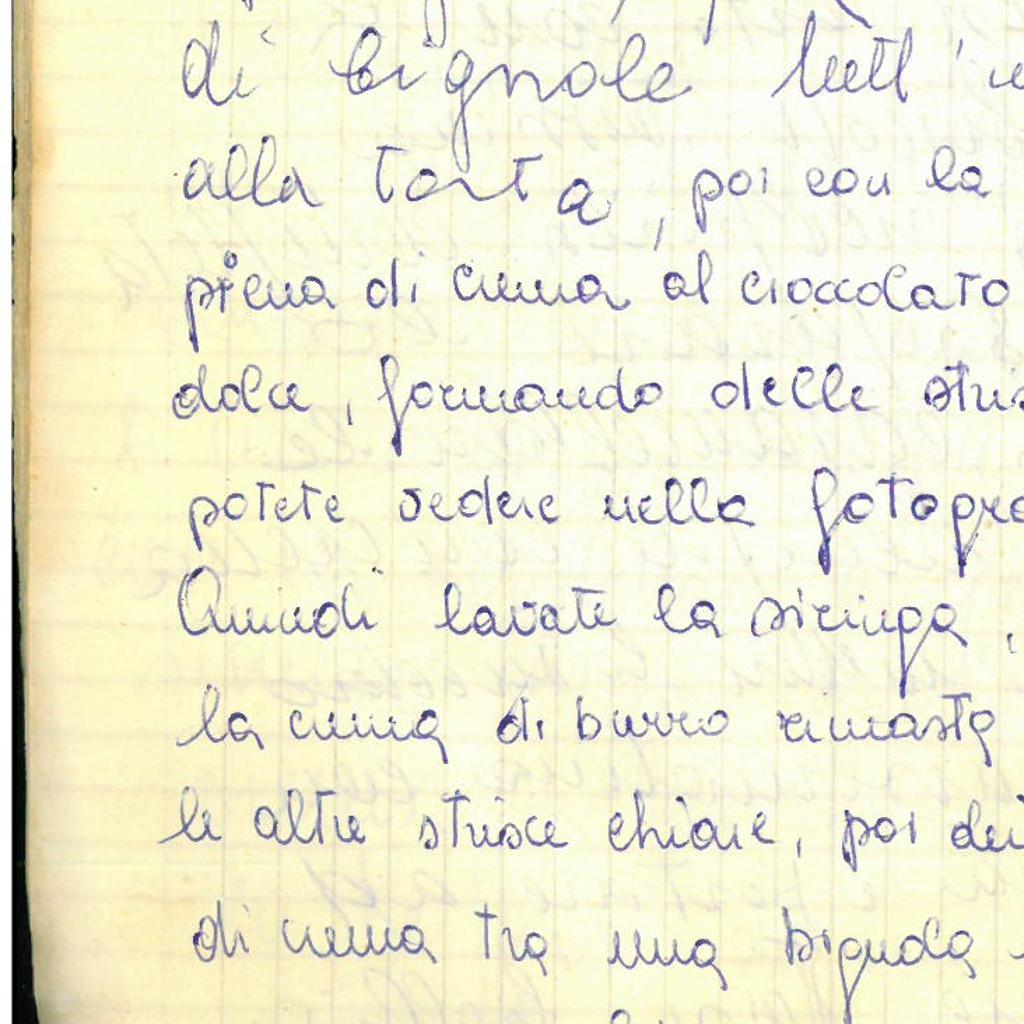 di bignole tutt'
alla torta, poi con la
piena di crema al cioccolato
dolce, formando delle stris
potete vedere nella fotogra
Quindi lavate la siringa,
la crema di burro rimasta
le altre strisce chiare, poi dei
di crema tra una bignola